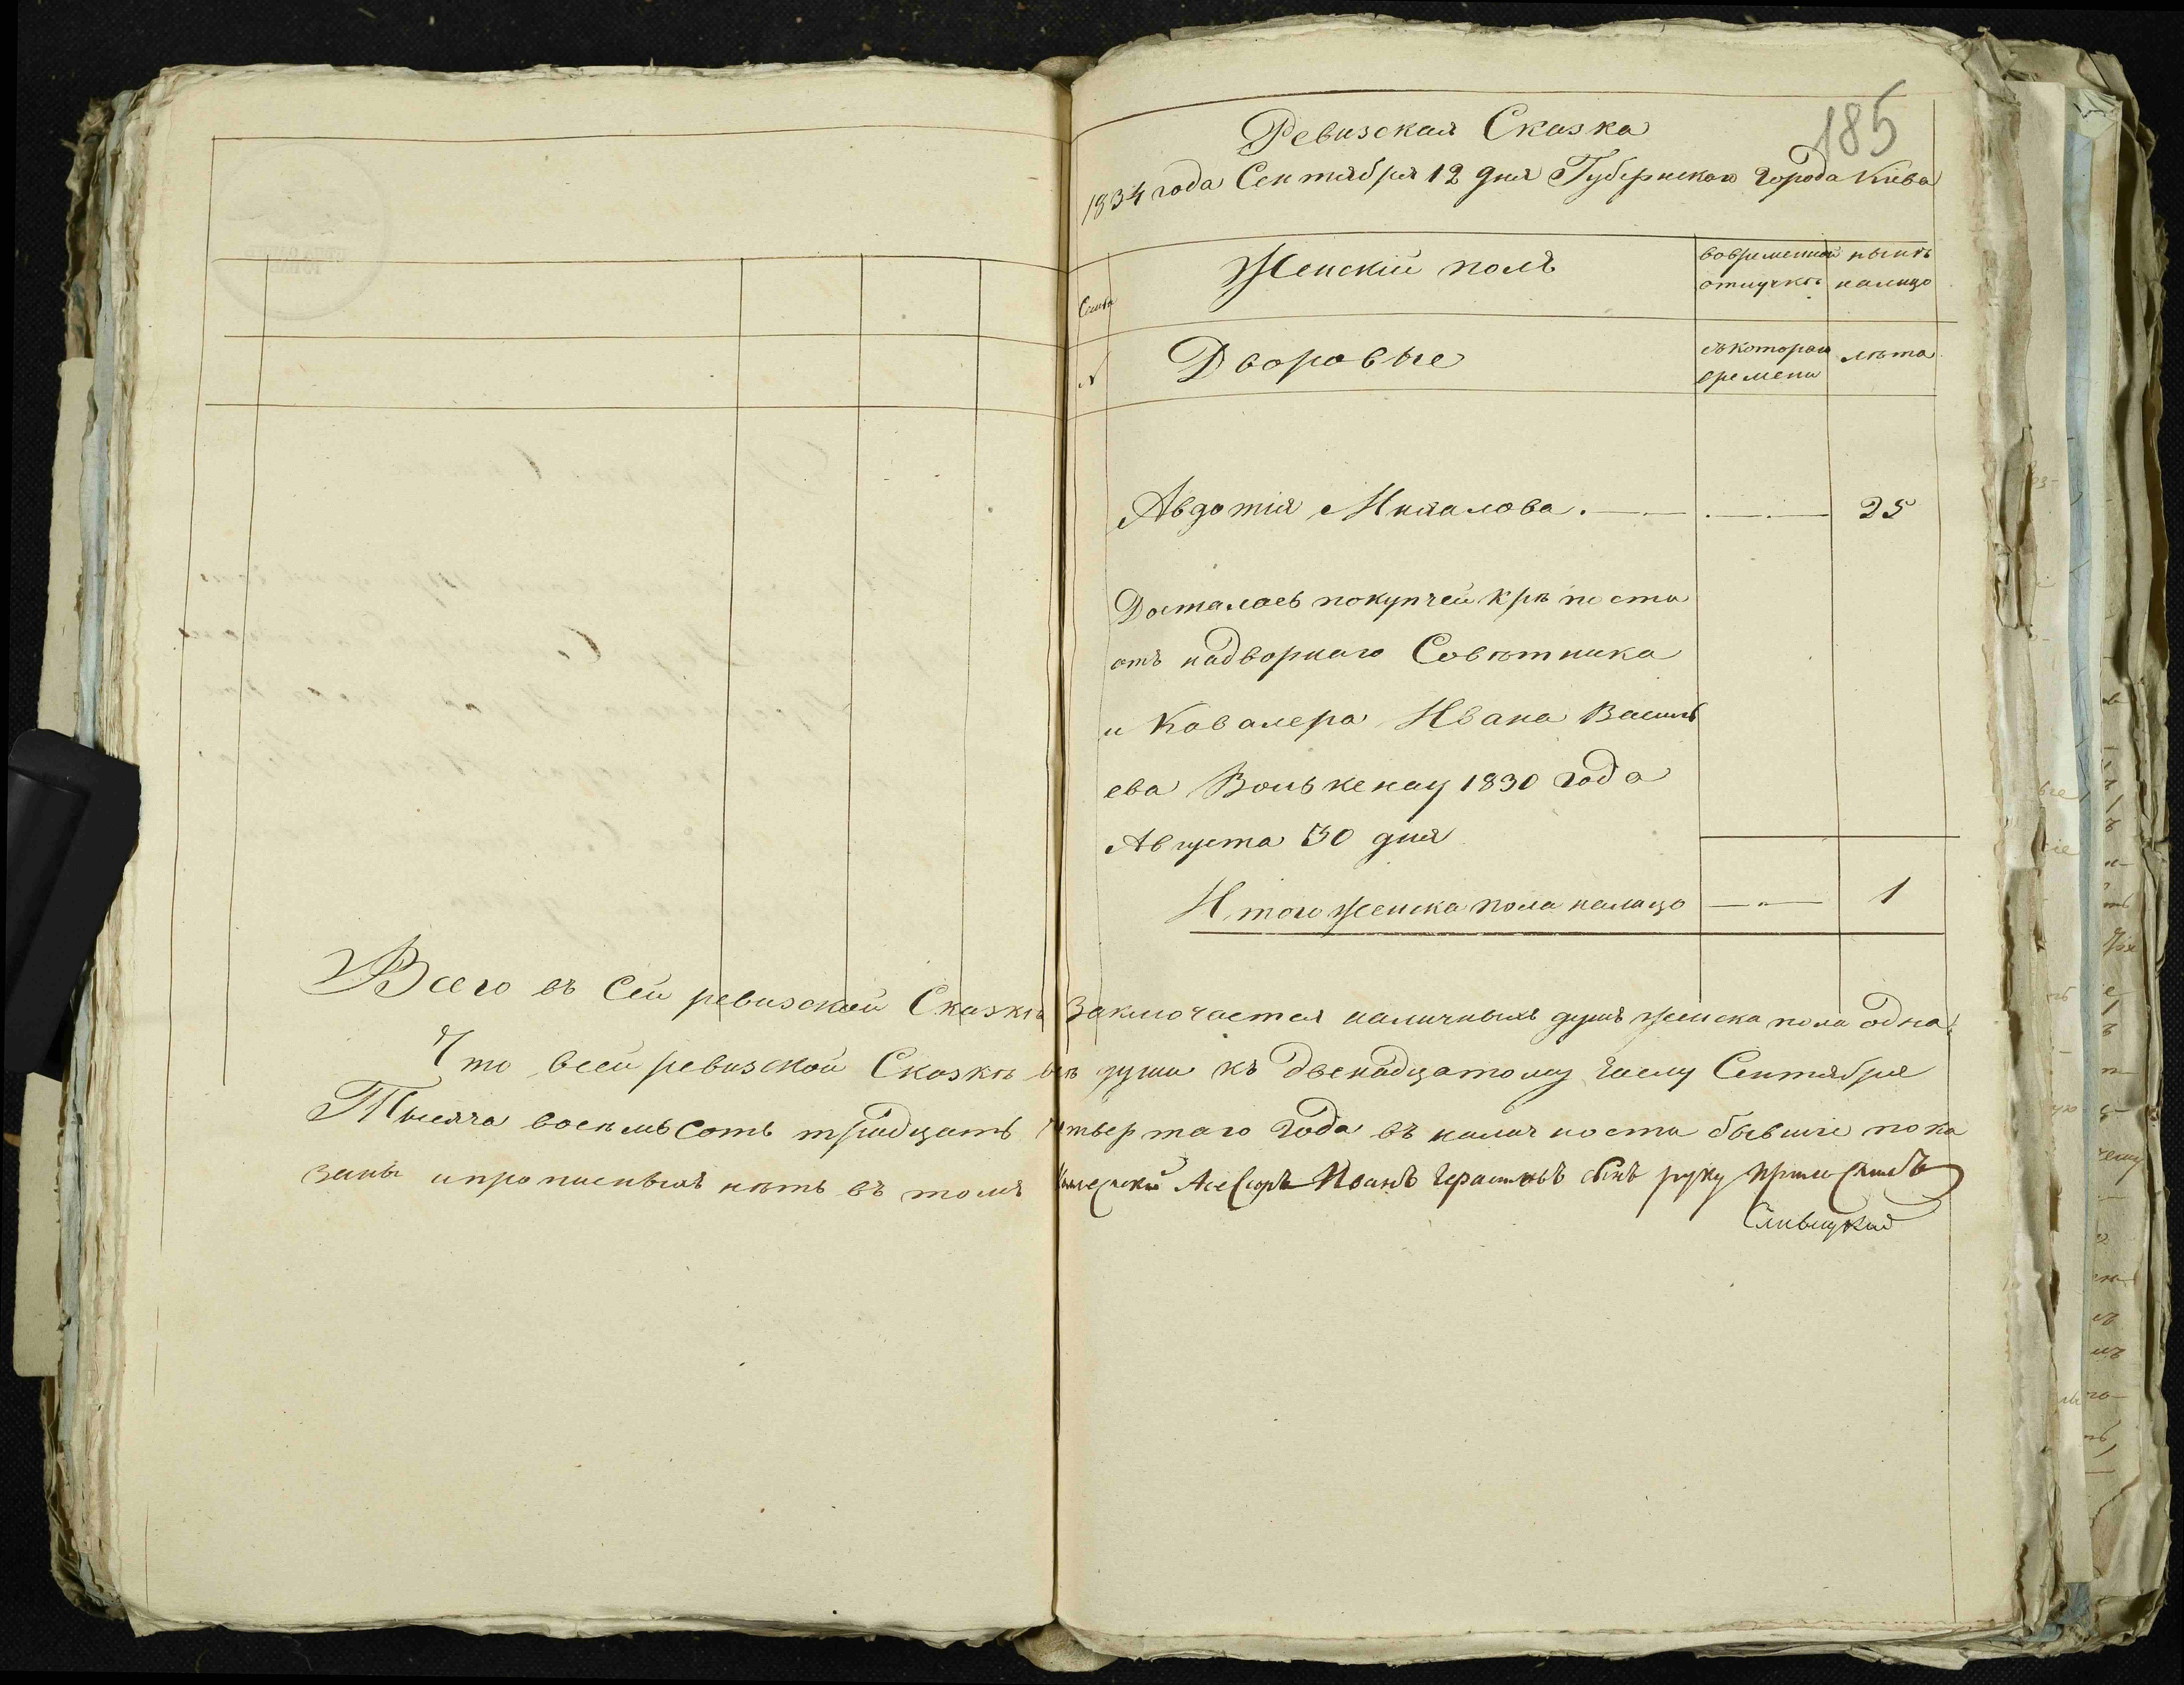 185
Ревизская Сказка
1834 года Сентября 12 дня Губернскаго города Киева
Семьи
Женскій полъ
вовременной отлучкѣ
нынѣ налицо
N
Дворовые
съкотораго времени
лѣта
Авдотія .——.——.— 25
Досталась покупчей крѣпости
отъ надворнаго Совѣтника
и Кавалера Ивана Василь
ева 1830 года
Августа 30 дня
Итого женска пола налицо —.— 1
Всего въ Сей ревизской Сказкѣ Заключается наличныхъ душъ женска пола одна
Что всей ревизской Сказкѣ всѣ души къ двенадцатому числу Сентября
Тысяча восемьсотъ тридцать четвертаго года въ наличности бывшіе пока
заны ипрописныхъ нѣтъ въ томъ Асессоръ Иванъ сынъ руку приложилъ
Сливицкій